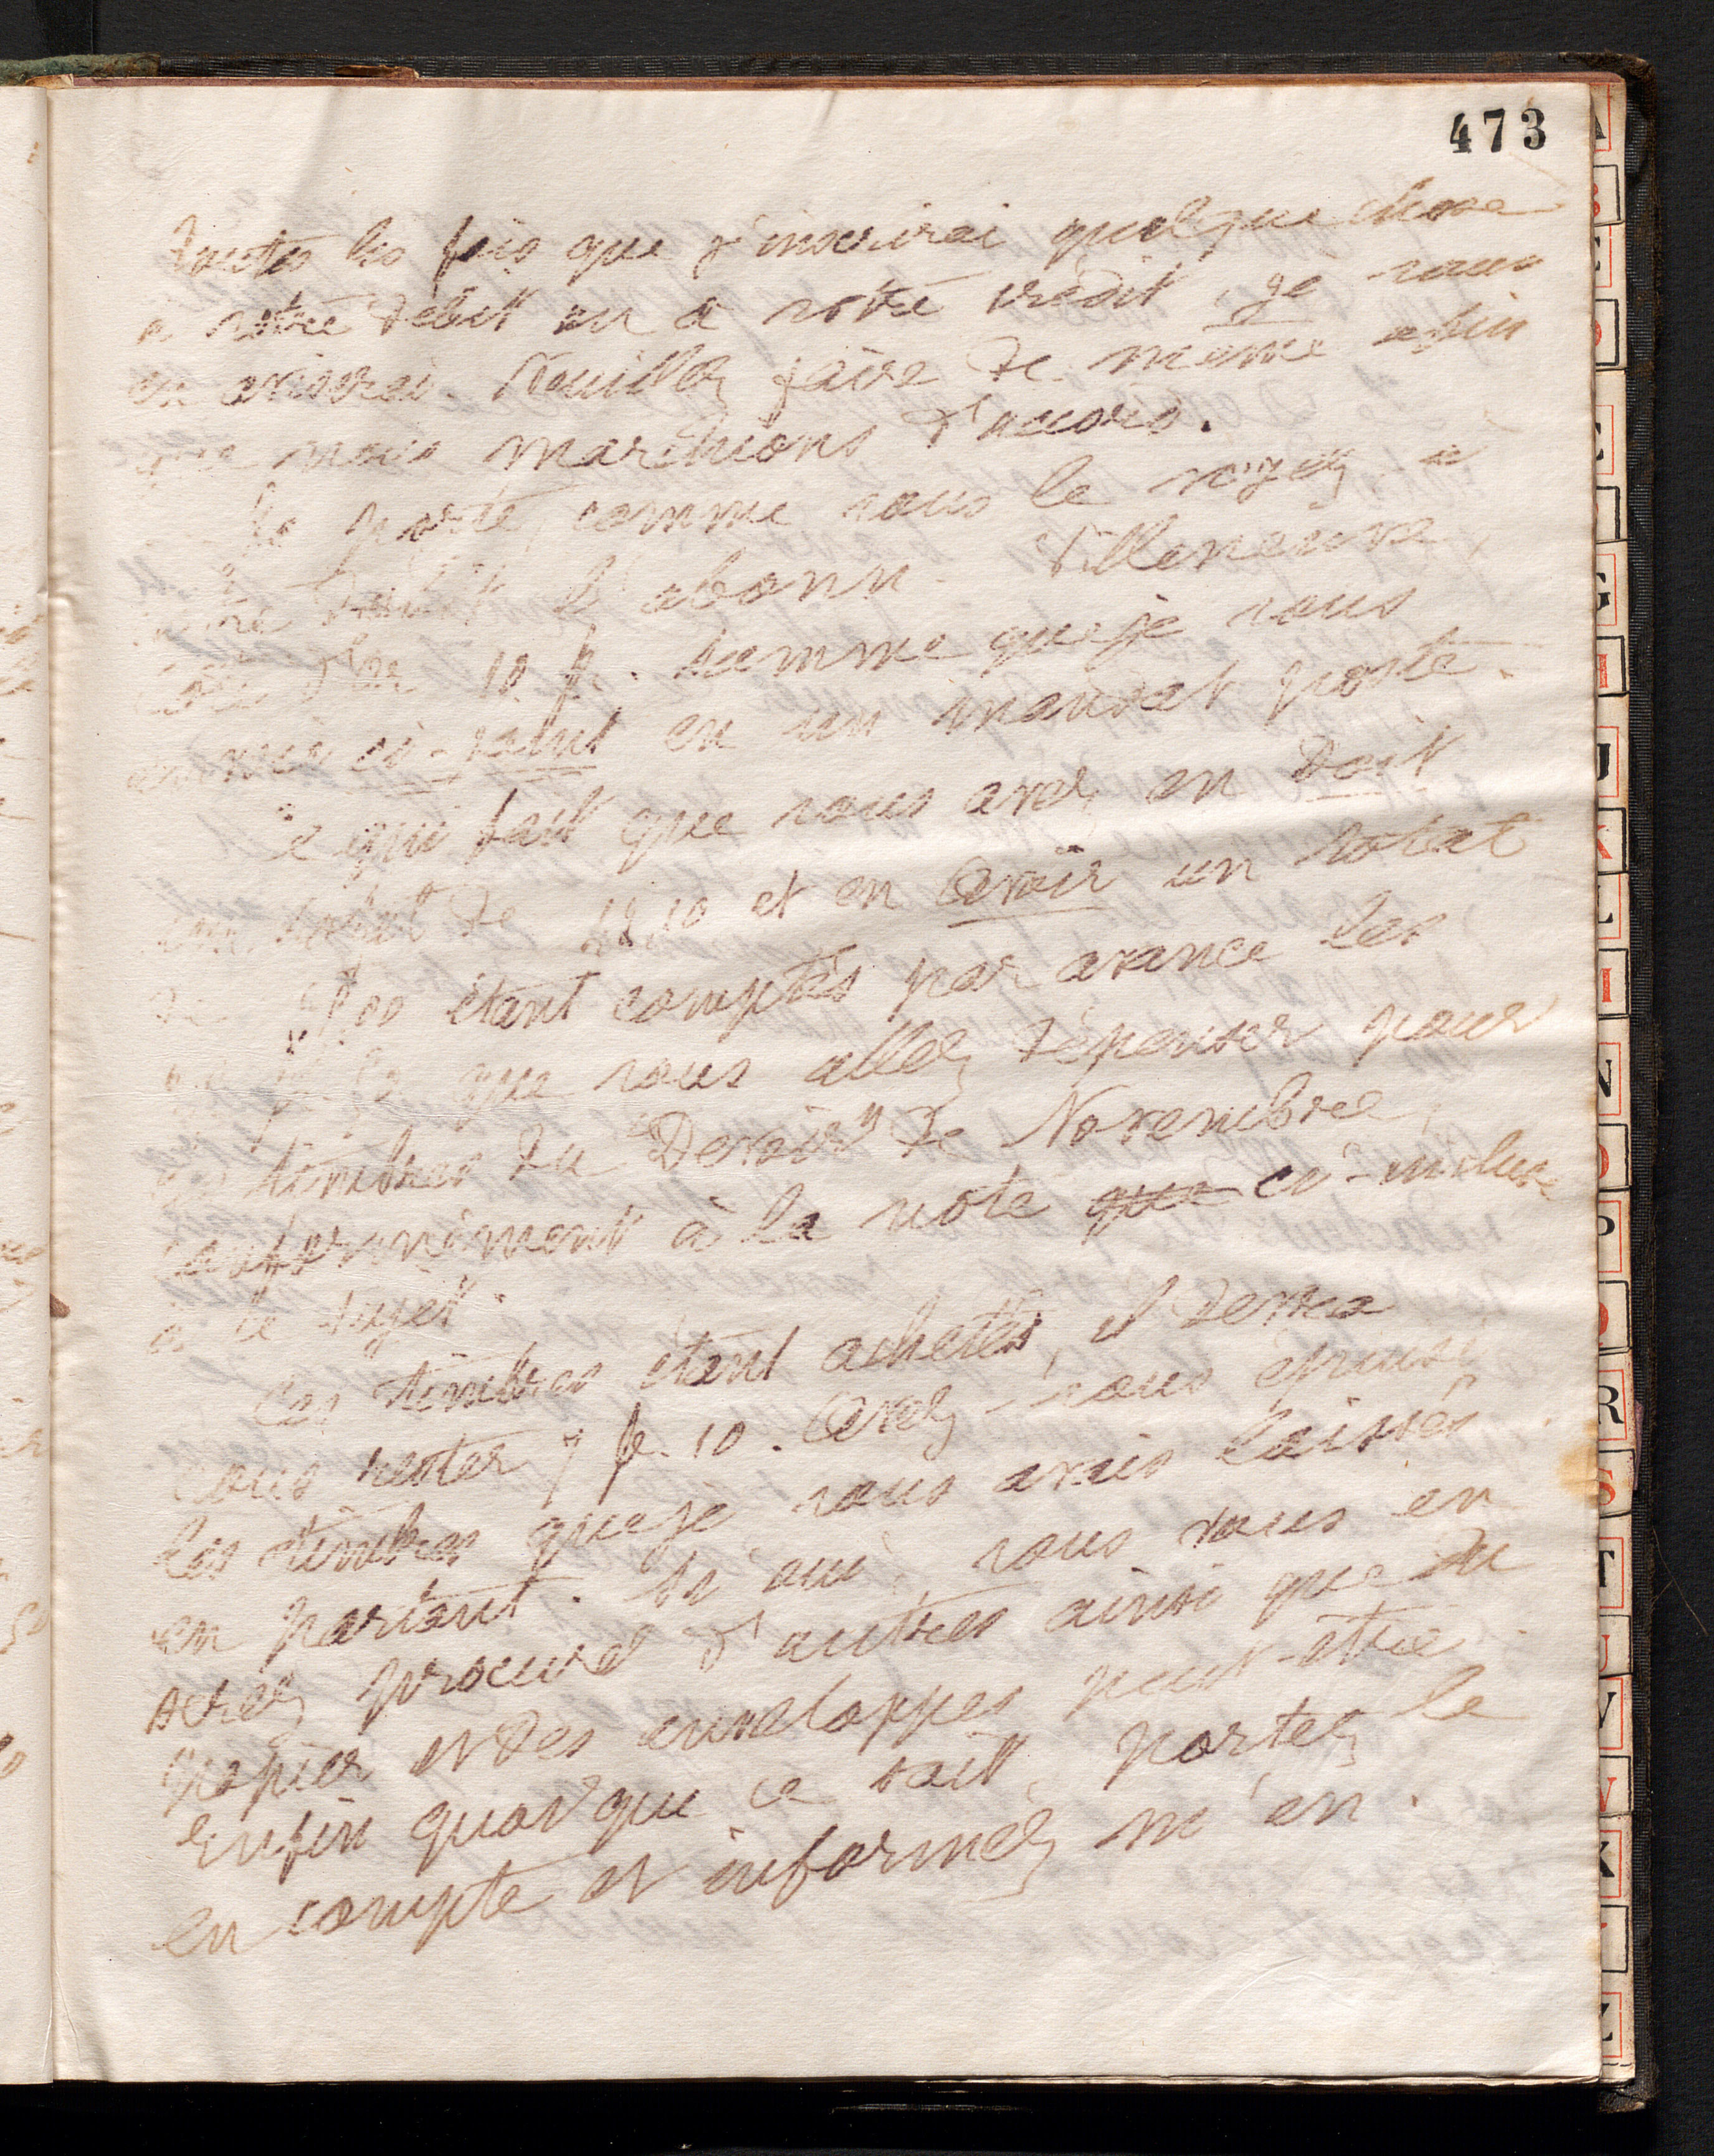 473
Toutes les fois que j'inscrirai quelque chose
à votre débit ou à votre crédit, je vous
en aviserai. Veuillez faire de même afin
que nous marchions d'accord.
Je porte, comme vous le voyez, à
votre débit l'abonn. Villeneuve,
10 f. somme que je vous
envoie ci-joint en un mandat poste.
Ce qui fait que vous avez en Doit
un total de et en Avoir un total
de étant comptés par avance les
que vous allez dépenser pour
les timbres du "Devoir" de Novembre,
conformément à la note que ci-incluse
à ce sujet.
Ces timbres étant achetés, il devra
vous rester 7 f. 10. Avez-vous épuisé
les timbres que je vous avais laissés
en partant. Si oui, vous vous en
serez procuré d'autres ainsi que du
papier et des enveloppes peut-être
Enfin quoique ce soit, portez le
en compte et informez m'en.